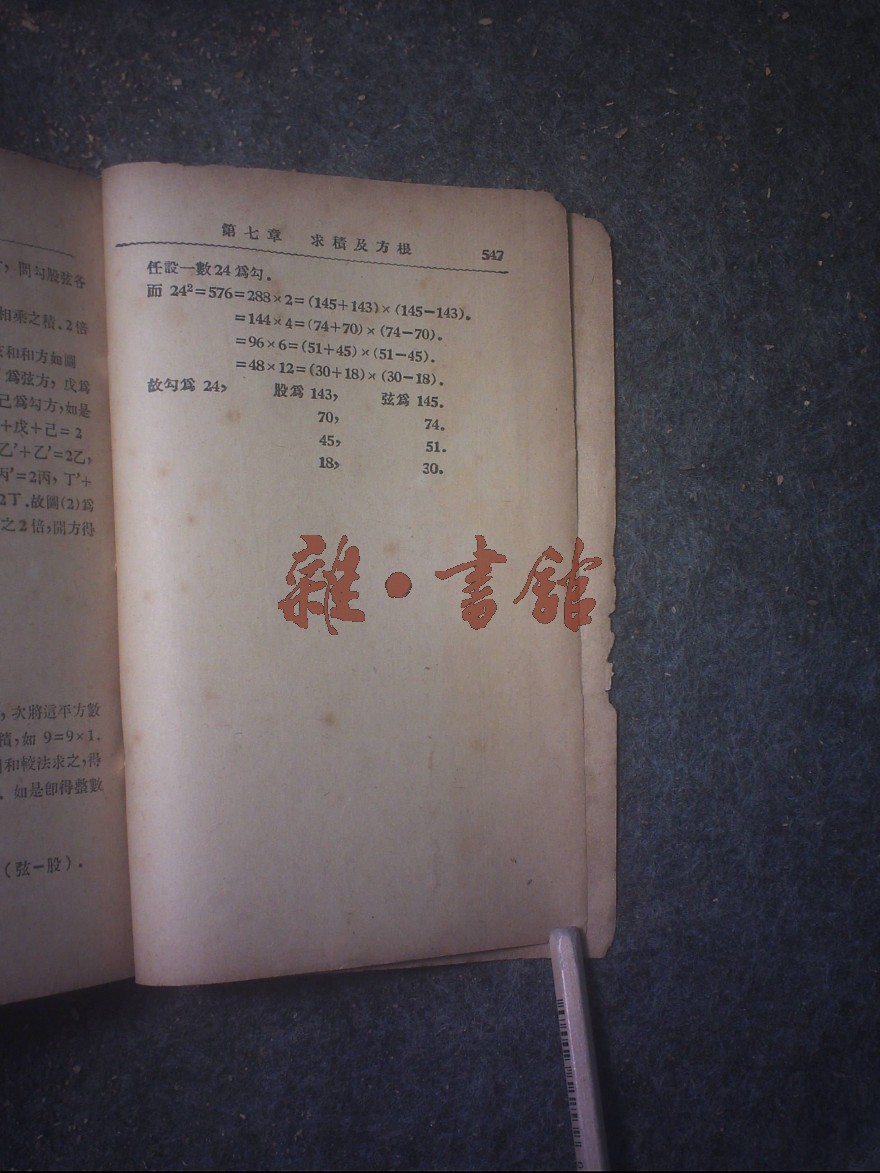 ，問勾股弦各
和乘之積．2倍
弦和和方如圖
爲弦方，戊爲
己爲勾方，如是
+戊+己=2
乙′+乙′=2乙，
丙′=2丙，丁′+
2丁．故圖(2)爲
之2倍，開方得
，次將這平方數
積，如 9=9×1．
和較法求之，得
．如是卽得整數
（弦－股）．
第七章 求積及方根 547
任設一數24爲勾．
而 24²=576=288×2=(145+143)×(145−143)．
=144×4=(74+70)×(74−70)．
=96×6=(51+45)×(51−45)．
=48×12=(30+18)×(30−18)．
故勾爲 24， 股爲 143， 弦爲 145．
70， 74．
45， 51．
18， 30．
雜·書館